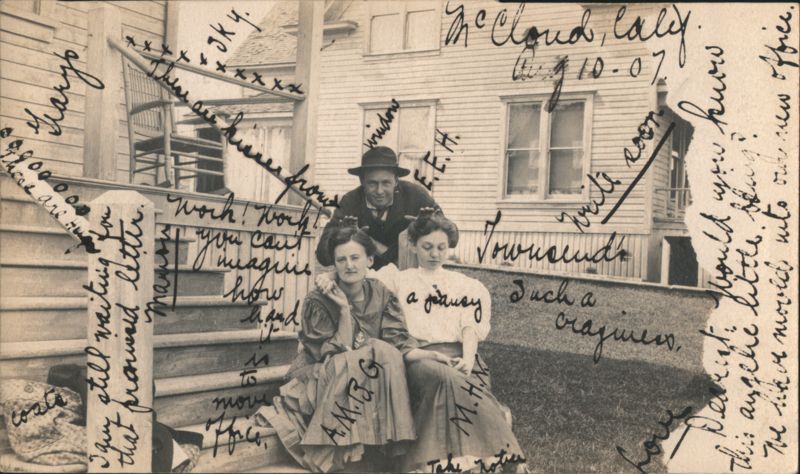 McCloud, Calif.
Aug 10-07.
sky.
xxxxxx
xxxxxx
These are kisses from
window
E.E.H.
Write soon.
Townsend's
Such a
craziness.
Work! Work!
you can't
imagine
how
hard
it
is to
move
office.
I am still waiting for
that promised letter.
coats
a pansy
A.M.B.G.
M.H.N.
Take notice
Love.
Dearest: Would you know
this angelic little being?
We have moved into our new office.